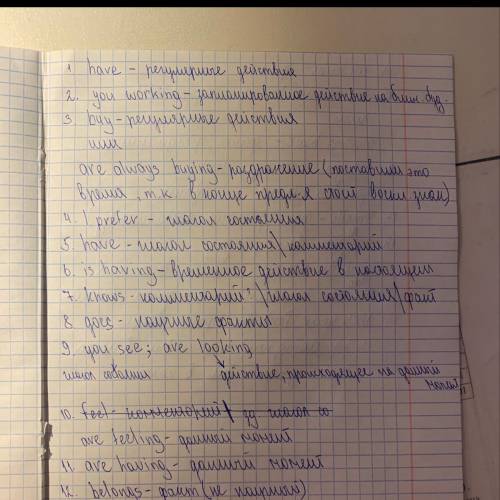 1 have - регулярные действия
2. you working - запланированное действие на ближ. буд.
3 buy - регулярные действия
или
are always buying - раздражение (поставили это
время, т.к. в конце предл-я стоит воскл знак)
4. I prefer - глагол состояния
5. have - глагол состояния \ комментарий
6. is having - временное действие в настоящем
7. knows - комментарий \ глагол состояния / факт
8. does - научные факты
9. you see; are looking
глагол действие, происходящее на данный
момент
10. feel - комментарий / глагол
are feeling - данный момент
11. are having - данный момент
12. belongs - факт (не научный)